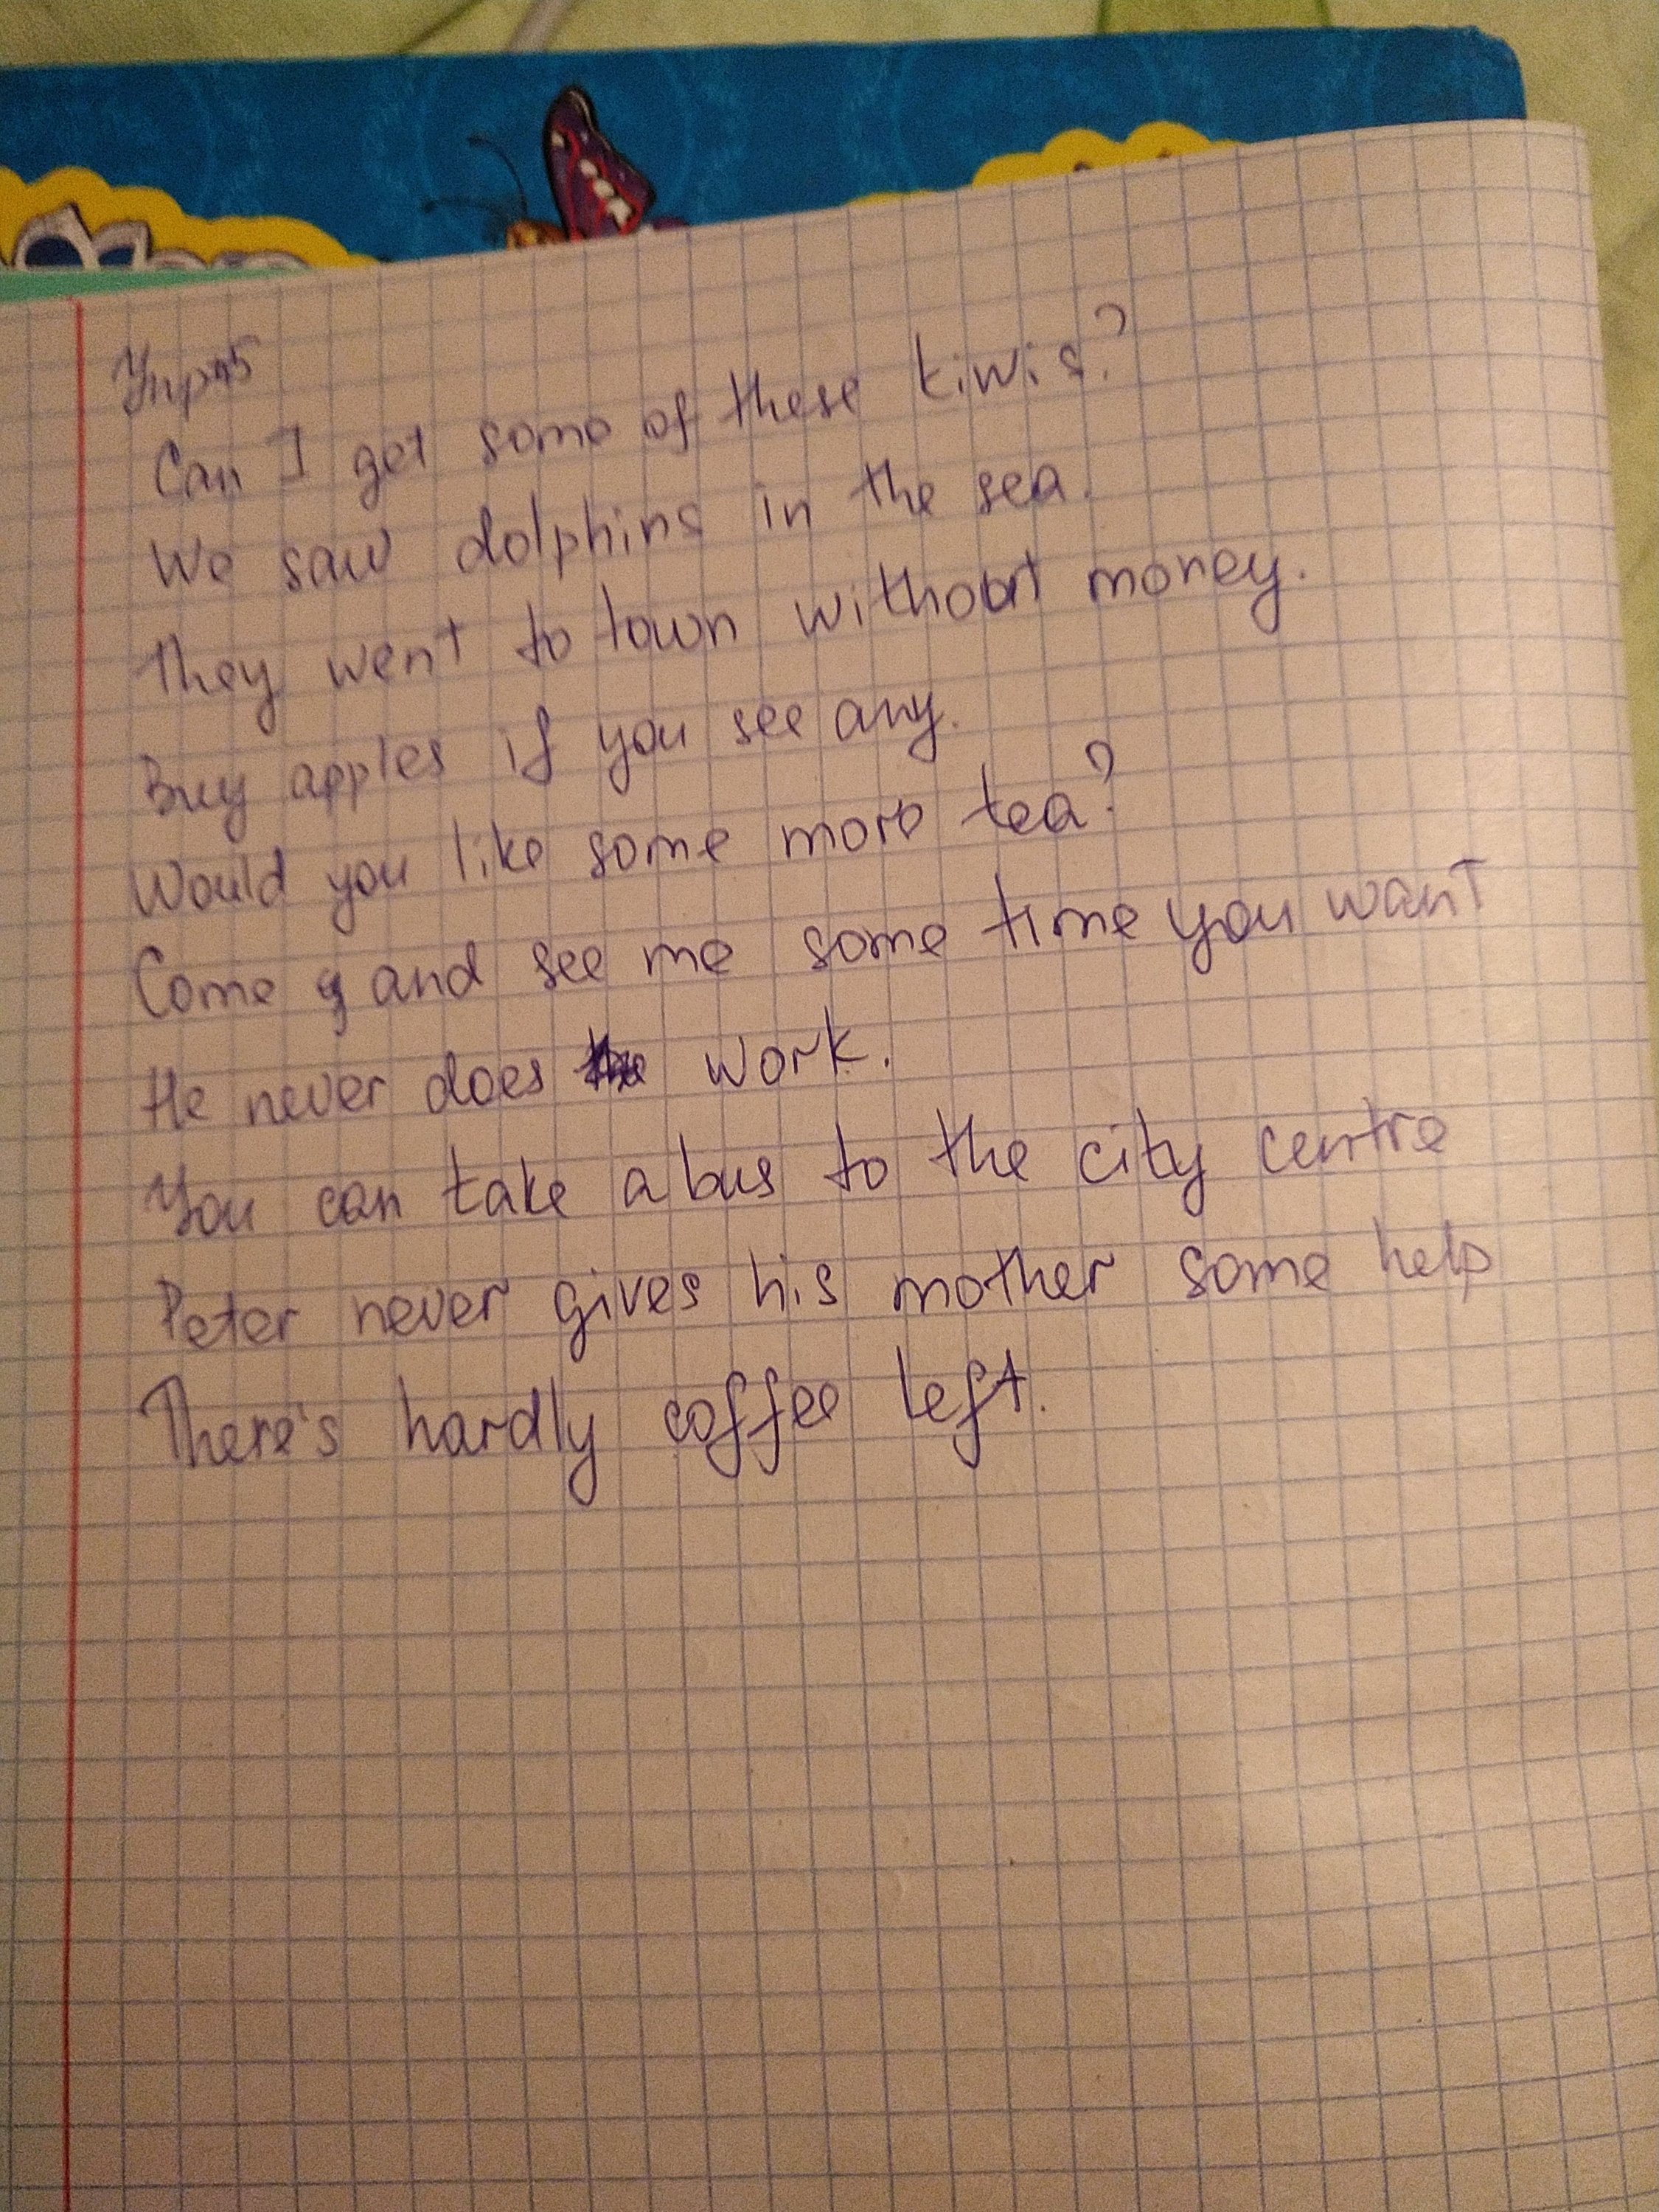 Упр 5
Can I get some of these kiwis?
We saw dolphins in the sea.
They went to town without money.
Buy apples if you see any.
Would you like some more tea?
Come and see me some time you want
He never does work.
You can take a bus to the city centre
Peter never gives his mother some help
There's hardly coffee left.